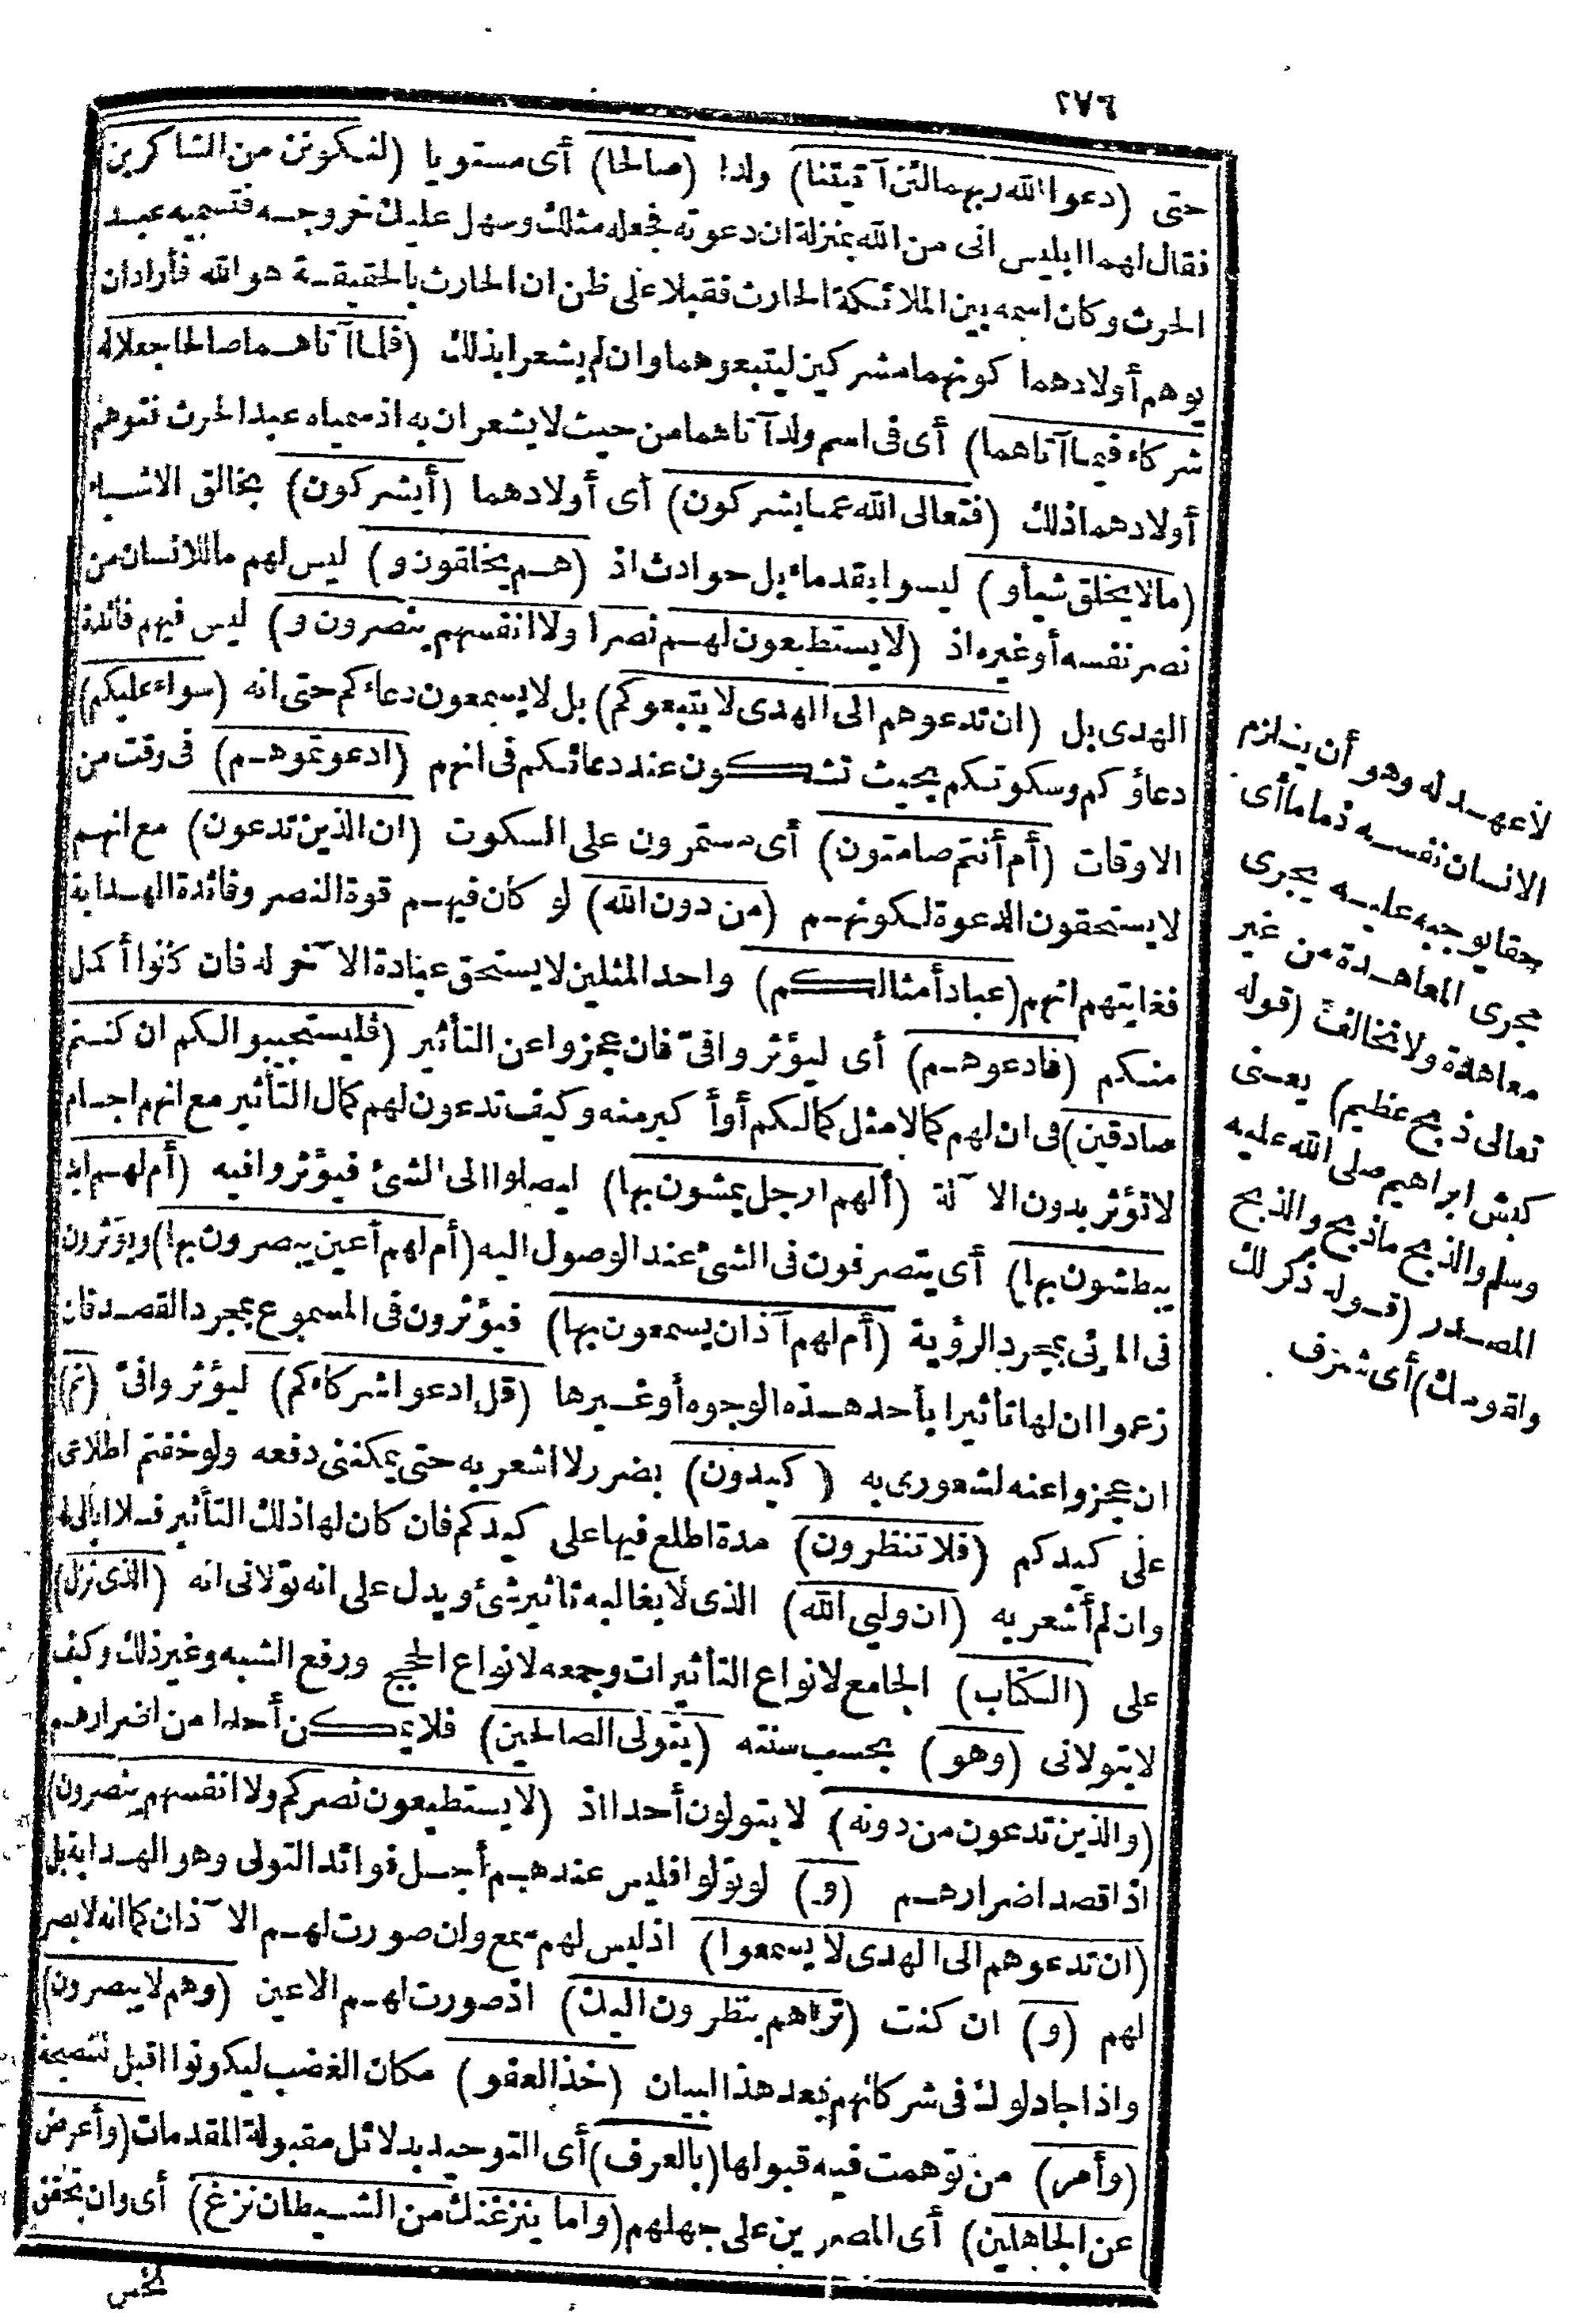 ٢٧٦
حتى (دعوا الله ربهما لئن آتيتنا) ولدا (صالحا) أى مستويا (لنكونن من الشاكرين
فقال لهما ابليس انى من الله بمنزلة ان دعوته فجعله مثلك وسهل عليك خروجه فتسميه عبد
الحرث وكان اسمه بين الملائكة الحارث فقبلا على ظن ان الحارث بالحقيقة هو الله فأراد ان
يوهم أولادهما كونهما مشركين ليتبعوهما وان لم يشعرا بذلك (فلما آتاهما صالحا جعلا له
شركاء فيما آتاهما) أى فى اسم ولد آتاهما من حيث لا يشعران به اذ سمياه عبد الحرث فتوهم
أولادهما ذلك (فتعالى الله عما يشركون) أى أولادهما (أيشركون) بخالق الاشياء
(ما لا يخلق شيأ و) ليسوا بقدماء بل حوادث اذ (هم يخلقون و) ليس لهم ما للانسان من
نصر نفسه أو غيره اذ (لا يستطيعون لهم نصرا ولا انفسهم ينصرون و) ليس فيهم فائدة
الهدى بل (ان تدعوهم الى الهدى لا يتبعوكم) بل لا يسمعون دعاءكم حتى انه (سواء عليكم)
دعاؤكم وسكوتكم بحيث تشكون عند دعائكم فى انهم (ادعوتموهم) فى وقت من
الاوقات (أم أنتم صامتون) أى مستمرون على السكوت (ان الذين تدعون) مع انهم
لا يستحقون الدعوة لكونهم (من دون الله) لو كان فيهم قوة النصر وفائدة الهداية
فغايتهم انهم (عباد أمثالكم) واحد المثلين لا يستحق عبادة الآخر له فان كانوا أكمل
منكم (فادعوهم) أى ليؤثروا فىّ فان عجزوا عن التأثير (فليستجيبوا لكم ان كنتم
صادقين) فى ان لهم كمالا مثل كمالكم أو أكبر منه وكيف تدعون لهم كمال التأثير مع انهم اجسام
لا تؤثر بدون الآلة (ألهم ارجل يمشون بها) ليصلوا الى الشئ فيؤثروا فيه (أم لهم ايد
يبطشون بها) أى يتصرفون فى الشئ عند الوصول اليه (أم لهم أعين يبصرون بها) ويؤثرون
فى المرئى بمجرد الرؤية (أم لهم آذان يسمعون بها) فيؤثرون فى المسموع بمجرد القصد فان
زعموا ان لها تأثيرا بأحد هذه الوجوه أو غيرها (قل ادعوا شركاءكم) ليؤثروا فىّ (ثم)
ان عجزوا عنه لشعورى به (كيدون) بضرر لا اشعر به حتى يمكننى دفعه ولو خفتم اطلاعى
على كيدكم (فلا تنظرون) مدة اطلع فيها على كيدكم فان كان لها ذلك التأثير فلا ابالى له
وان لم أشعر به (ان وليى الله) الذى لا يغالبه تأثير شئ ويدل على انه تولانى انه (الذى نزل)
على (الكتاب) الجامع لانواع التأثيرات وجمعه لانواع الحجج ورفع الشبه وغير ذلك وكيف
لا يتولانى (وهو) بحسب سنته (يتولى الصالحين) فلا يمكن أحدا من اضرارهم
(والذين تدعون من دونه) لا يتولون أحدا اذ (لا يستطيعون نصركم ولا انفسهم ينصرون)
اذا قصد اضرارهم (و) لو تولوا فليس عندهم أجل فوائد التولى وهو الهداية بل
(ان تدعوهم الى الهدى لا يسمعوا) اذ ليس لهم سمع وان صورت لهم الآذان كما انه لا بصر
لهم (و) ان كنت (تراهم ينظرون اليك) اذ صورت لهم الاعين (وهم لا يبصرون)
واذا جادلوك فى شركائهم بعد هذا البيان (خذ العفو) مكان الغضب ليكونوا اقبل للنصيحة
(وأمر) من توهمت فيه قبولها (بالعرف) أى التوحيد بدلائل مقبولة المقدمات (وأعرض
عن الجاهلين) أى المصرين على جهلهم (واما ينزغنك من الشيطان نزغ) أى وان تحقق
لا عهد له وهو أن يلزم
الانسان نفسه ذماما أى
حقا يوجبه عليه يجرى
مجرى المعاهدة من غير
معاهدة ولا تخالف (قوله
تعالى ذبح عظيم) يعنى
كبش ابراهيم صلى الله عليه
وسلم والذبح ما ذبح والذبح
المصدر (قوله ذكر لك
ولقومك) أى شرف